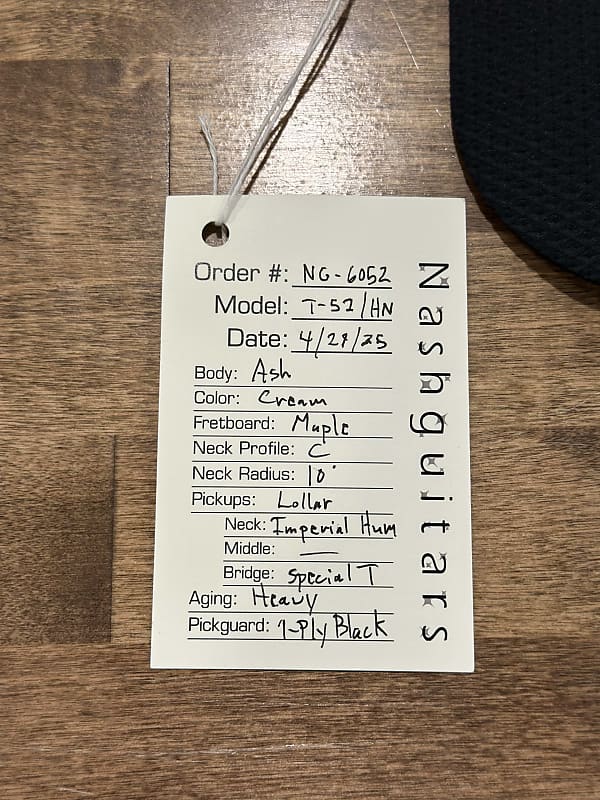 Order #: NG-6052
Model: T-52/HN
Date: 4/29/25
Body: Ash
Color: Cream
Fretboard: Maple
Neck Profile: C
Neck Radius: 10"
Pickups: Lollar
Neck: Imperial Hum
Middle: —
Bridge: Special T
Aging: Heavy
Pickguard: 1-Ply Black
Nashguitars